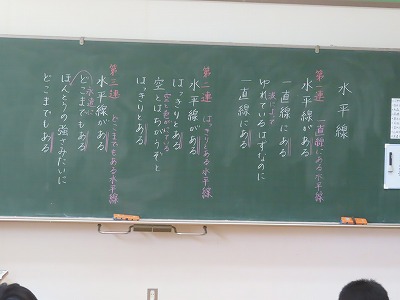 水平線
第一連 一直線にある水平線
水平線がある
一直線にある
波によって
ゆれているはずなのに
一直線にある
第二連 はっきりとある水平線
水平線がある
はっきりとある
空とはちがうぞと
はっきりとある
第三連 どこまでもある水平線
水平線がある
どこまでもある
永遠に
ほんとうの強さみたいに
どこまでもある